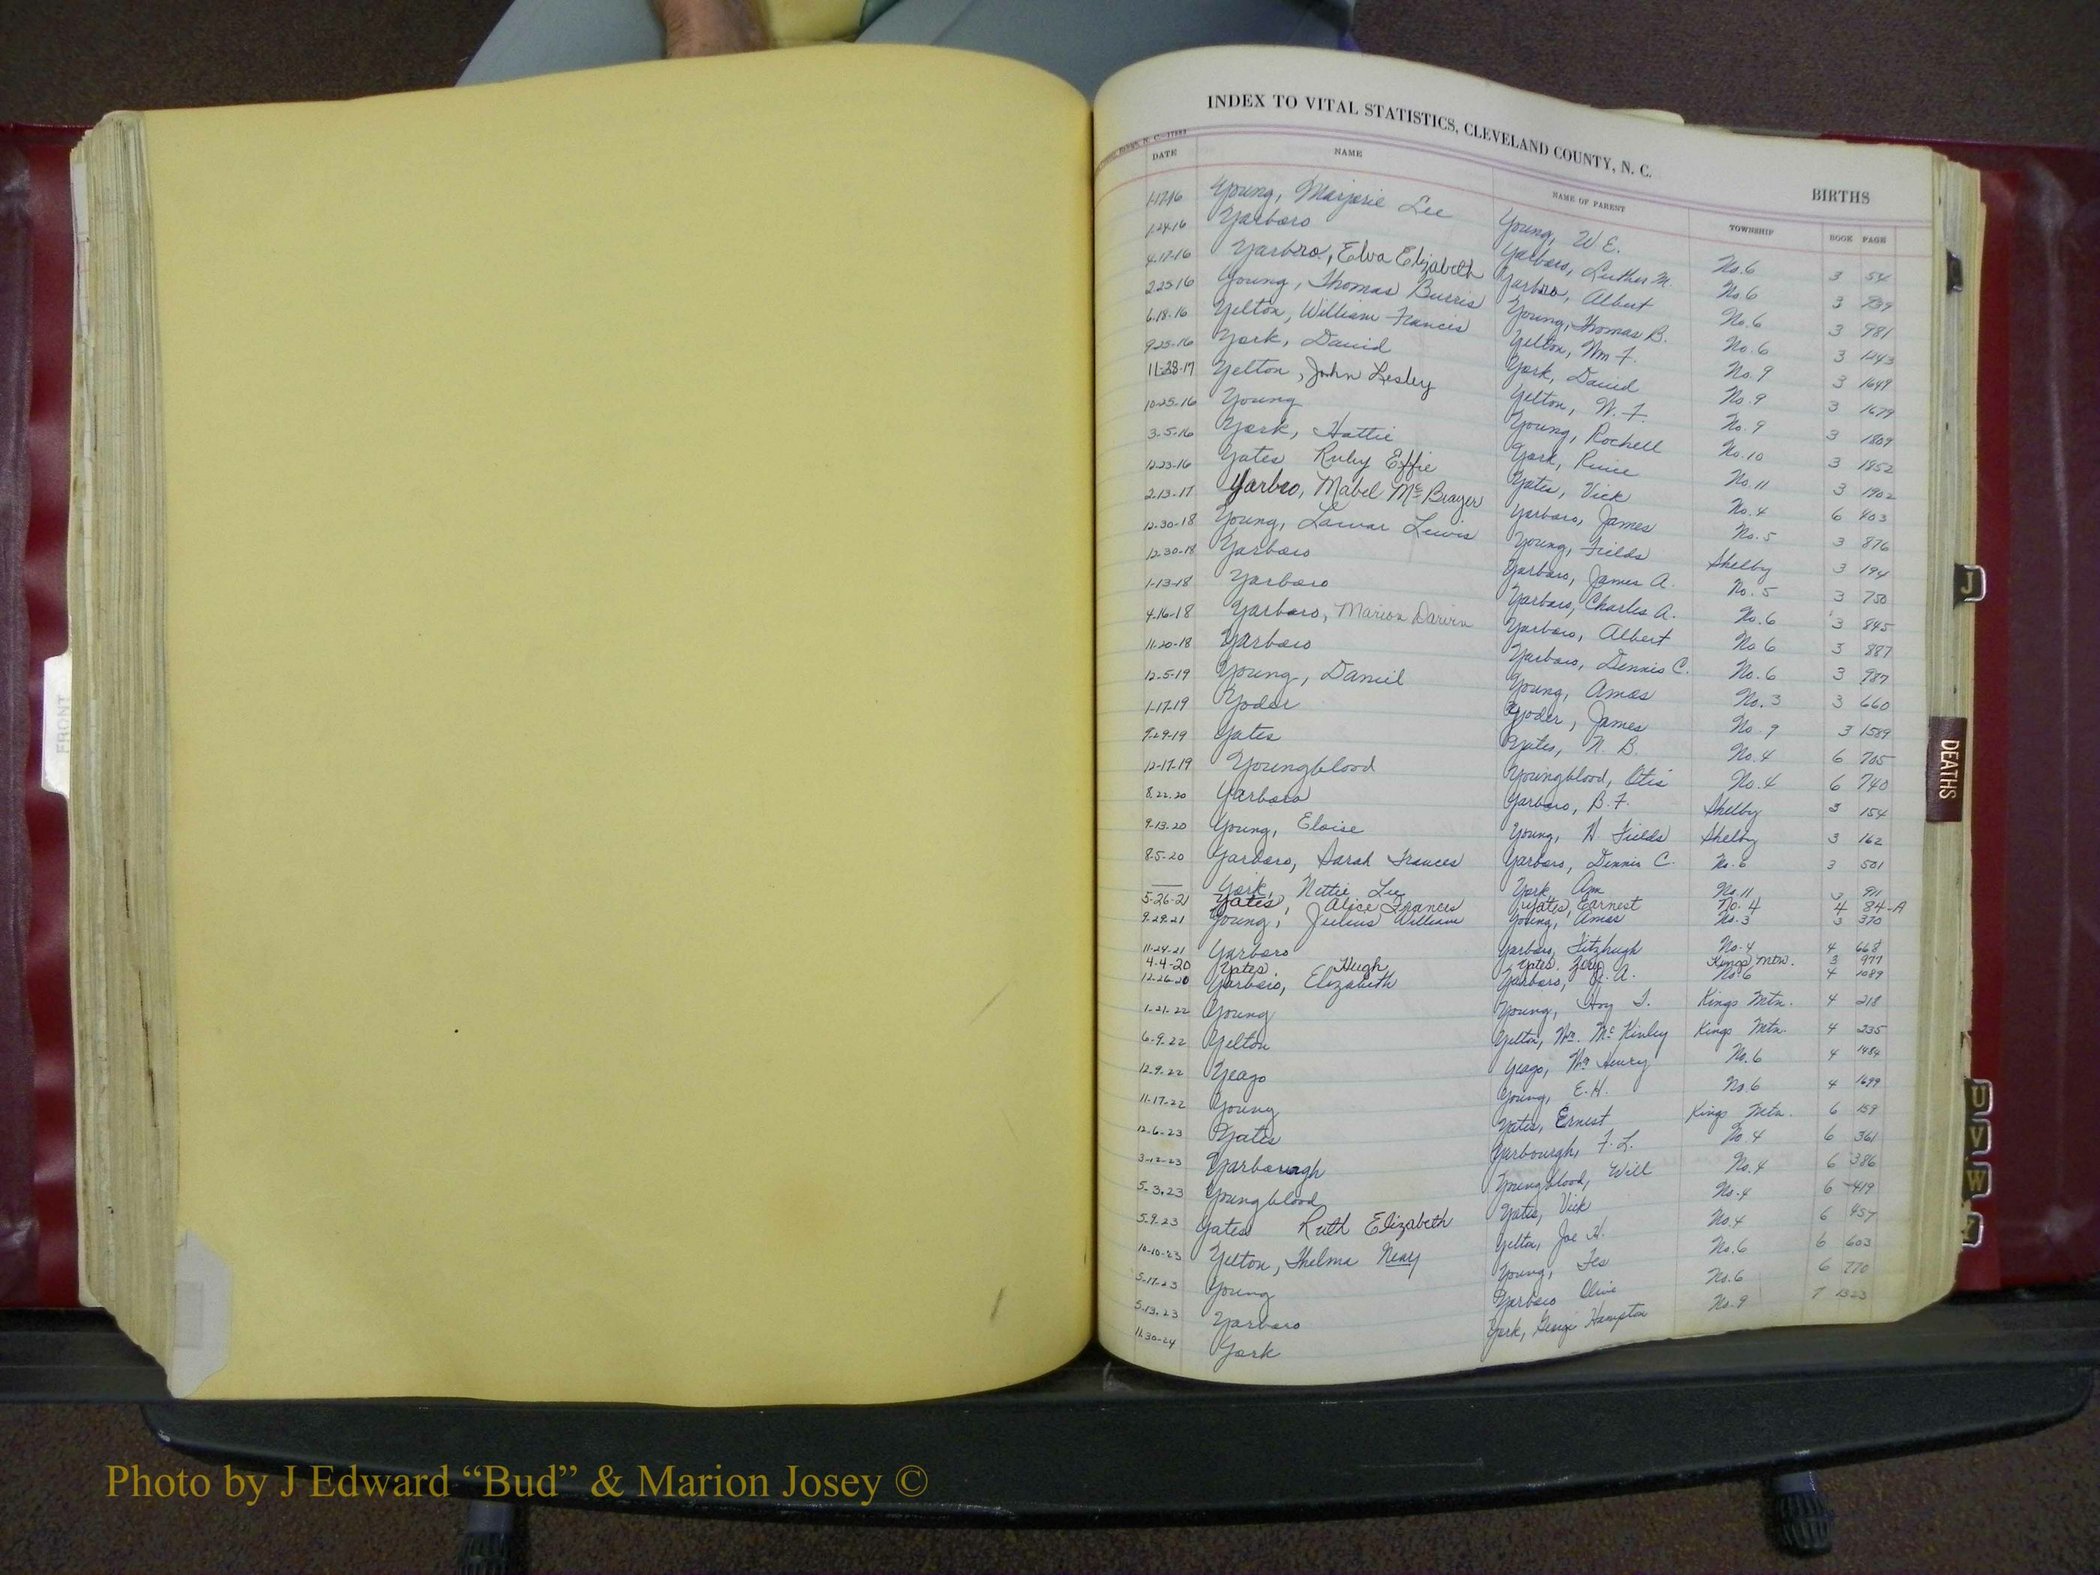 INDEX TO VITAL STATISTICS, CLEVELAND COUNTY, N. C.
BIRTHS
DATE NAME NAME OF PARENT TOWNSHIP BOOK PAGE
1-17-16 Young, Marjorie Lee Young, W E. No. 6 3 54
1-24-16 Yarboro Yarboro, Luther M. No. 6 3
4-17-16 Yarbro, Elva Elizabeth Yarbro, Albert No. 6 3 981
2-25-16 Young, Thomas Burris Young, Thomas B. No. 6 3 1243
6-18-16 Yelton, William Francis Yelton, Wm F. No. 9 3 1649
9-25-16 York, David York, David No. 9 3 1679
11-28-17 Yelton, John Lesley Yelton, W. F. No. 9 3 1809
10-25-16 Young Young, Rochell No. 10 3 1852
3-5-16 York, Hattie York, No. 11 3 1902
12-23-16 Yates Ruby Effie Yates, Vick No. 4 6 403
2-13-17 Yarbro, Mabel McBrayer Yarboro, James No. 5 3 876
12-30-18 Young, Lamar Lewis Young, Fields Shelby 3 194
12-30-18 Yarboro Yarboro, James A. No. 5 3 750
1-13-18 Yarboro Yarboro, Charles A. No. 6 3 845
4-16-18 Yarboro, Marion Darvin Yarboro, Albert No 6 3 887
11-20-18 Yarboro Yarboro, Dennis C. No. 6 3 987
12-5-19 Young, Daniel Young, Amos No. 3 3 660
1-17-19 Yoder Yoder, James No. 9 3 1589
9-29-19 Yates Yates, N. B. No. 4 6 705
12-17-19 Youngblood Youngblood, Otis No. 4 6 740
8-22-20 Yarboro Yarboro, B. F. Shelby 3 154
9-13-20 Young, Eloise Young, H Fields Shelby 3 162
8-5-20 Yarboro, Sarah Frances Yarboro, Dennis C. No. 6 3 501
— York, Nettie Lee York, Am No. 11 3 911
5-26-21 Yates, Alice Frances Yates, Earnest No. 4 4 84-A
9-29-21 Young, Julius William Young, Amos No. 3 3 370
11-24-21 Yarboro Yarboro, Fitzhugh No. 4 4 668
4-4-20 Yates, Hugh Yates, Kings Mtn. 3 977
12-26-20 Yarboro, Elizabeth Yarboro, A. No. 6 4 1089
1-21-22 Young Young, Hoy T. Kings Mtn. 4 218
6-9-22 Yelton Yelton, Wm. McKinley Kings Mtn. 4 235
12-9-22 Yeago Yeago, Wm Henry No. 6 4 1484
11-17-22 Young Young, E. H. No. 6 4 1699
12-6-23 Yates Yates, Ernest Kings Mtn. 6 159
3-12-23 Yarborough Yarbourgh, F. L. No 4 6 361
5-3-23 Youngblood Youngblood, Will No. 4 6 386
5-9-23 Yates Ruth Elizabeth Yates, Vick No. 4 6 419
10-10-23 Yelton, Thelma Neay Yelton, Joe H. No. 4 6 457
5-17-23 Young Young, No. 6 6 603
5-13-23 Yarboro Yarboro Olive No. 6 6 770
11-30-24 York York, George Hampton No. 9 7 1323
FRONT
J
DEATHS
U
V
W
Photo by J Edward “Bud” & Marion Josey ©